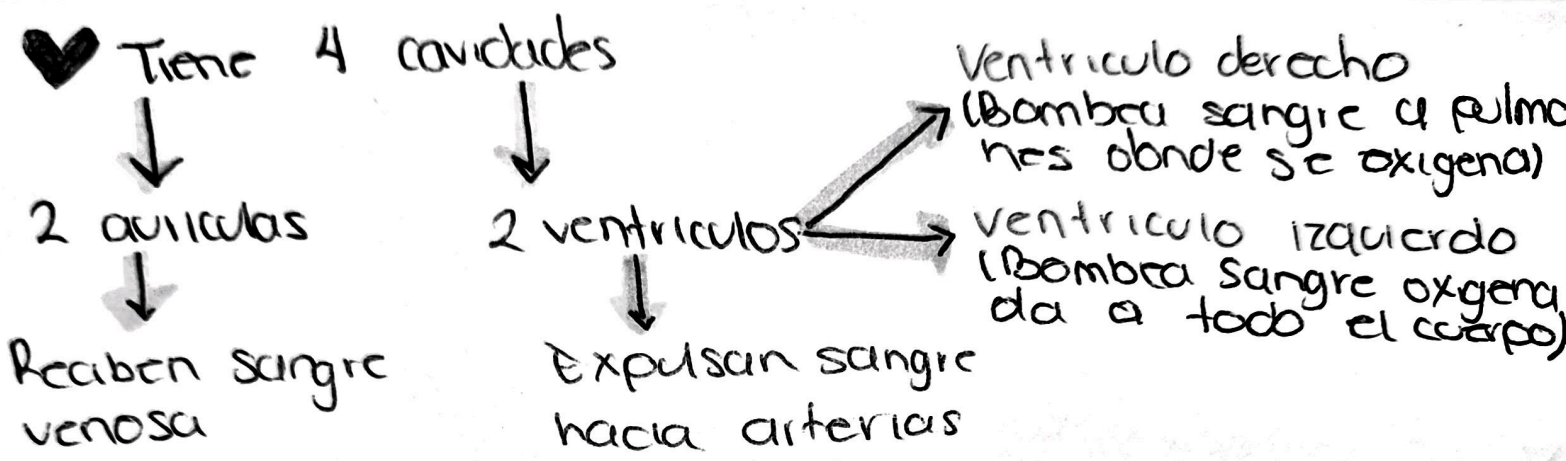 Tiene 4 cavidades
2 aurículas
Reciben sangre
venosa
2 ventrículos
Expulsan sangre
hacia arterias
Ventriculo derecho
(Bombea sangre a pulmo
nes donde se oxigena)
ventriculo izquierdo
(Bombea sangre oxigena
da a todo el cuerpo)